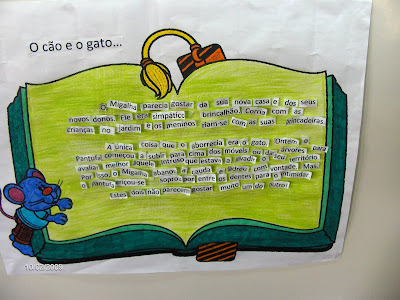 O cão e o gato...
O Migalha parecia gostar da sua nova casa e dos seus
novos donos. Ele era simpático e brincalhão. Corria com as
crianças no jardim e os meninos riam-se com as suas brincadeiras.
A única coisa que o aborrecia era o gato. Ontem o
Pantufa começou a subir para cima dos móveis ou das árvores para
avaliar melhor aquele intruso que estava a invadir o seu território.
Por isso, o Migalha abanou a cauda e ladrou com vontade. Mas
o Pantufa eriçou-se e soprou por entre os dentes para o intimidar.
Estes dois não parecem gostar muito um do outro!
10/02/2009